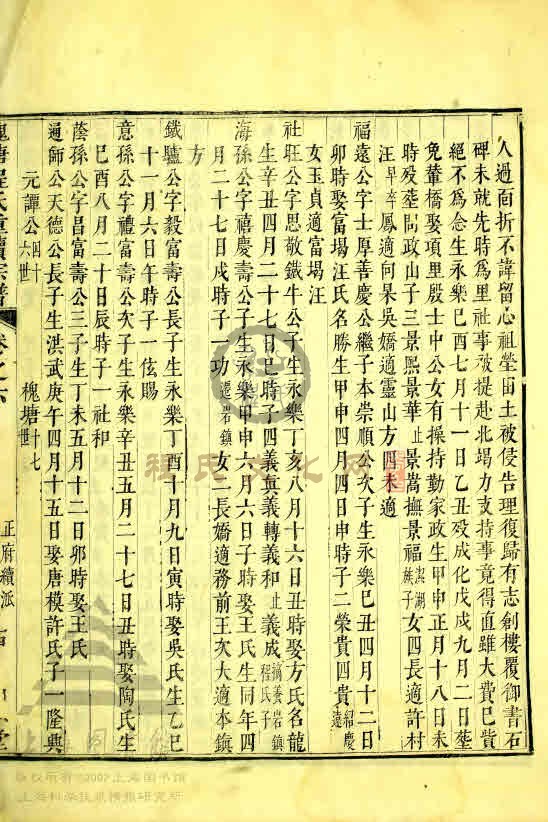 人過面折不諱留心祖塋田土被侵告理復歸有志創樓覆御書石
碑未就先時為里社事被提赴北場力支持事竟得直雖大費已貲
絕不為念生永樂己酉七月十一日乙丑歿成化戊戌九月二日塟
免輋橋娶項里殷士中公女有操持勤家政生甲申正月十八日未
時歿塟問政山子三景熙景華止景嵩撫景福潔湖族子女四長適許村
汪早卒鳳適向杲吳嬌適靈山方四未適
福遠公字士厚善慶公繼子本崇順公次子生永樂己丑四月十二日
卯時娶富塲汪氏名勝生甲申四月四日申時子二榮貴四貴紹慶遠
女玉貞適富塲汪
社旺公字思敬鐵牛公子生永樂丁亥八月十六日丑時娶方氏名龍
生辛丑四月二十七日巳時子四義與義轉義和止義成
海孫公字禧慶壽公子生永樂甲申六月六日子時娶王氏生同年四
月二十七日戌時子一功遷岩鎮女二長嬌適務前王次大適本鎮
方
鐵驢公字毅富壽公長子生永樂丁酉十月九日寅時娶吳氏生乙巳
十一月六日午時子一佉賜
意孫公字禮富壽公次子生永樂辛丑五月二十七日丑時娶陶氏生
己酉八月二十日辰時子一社和
蔭孫公字昌富壽公三子生丁未五月十二日卯時娶王氏
元譚公四十六世 槐塘十七世
通師公天德公長子生洪武庚午四月十五日娶唐模許氏子一隆興
槐塘程氏重續宗譜 卷之六 正府續派
程氏文化网
上海图书馆
版权所有©2007上海图书馆
上海科学技术情报研究所